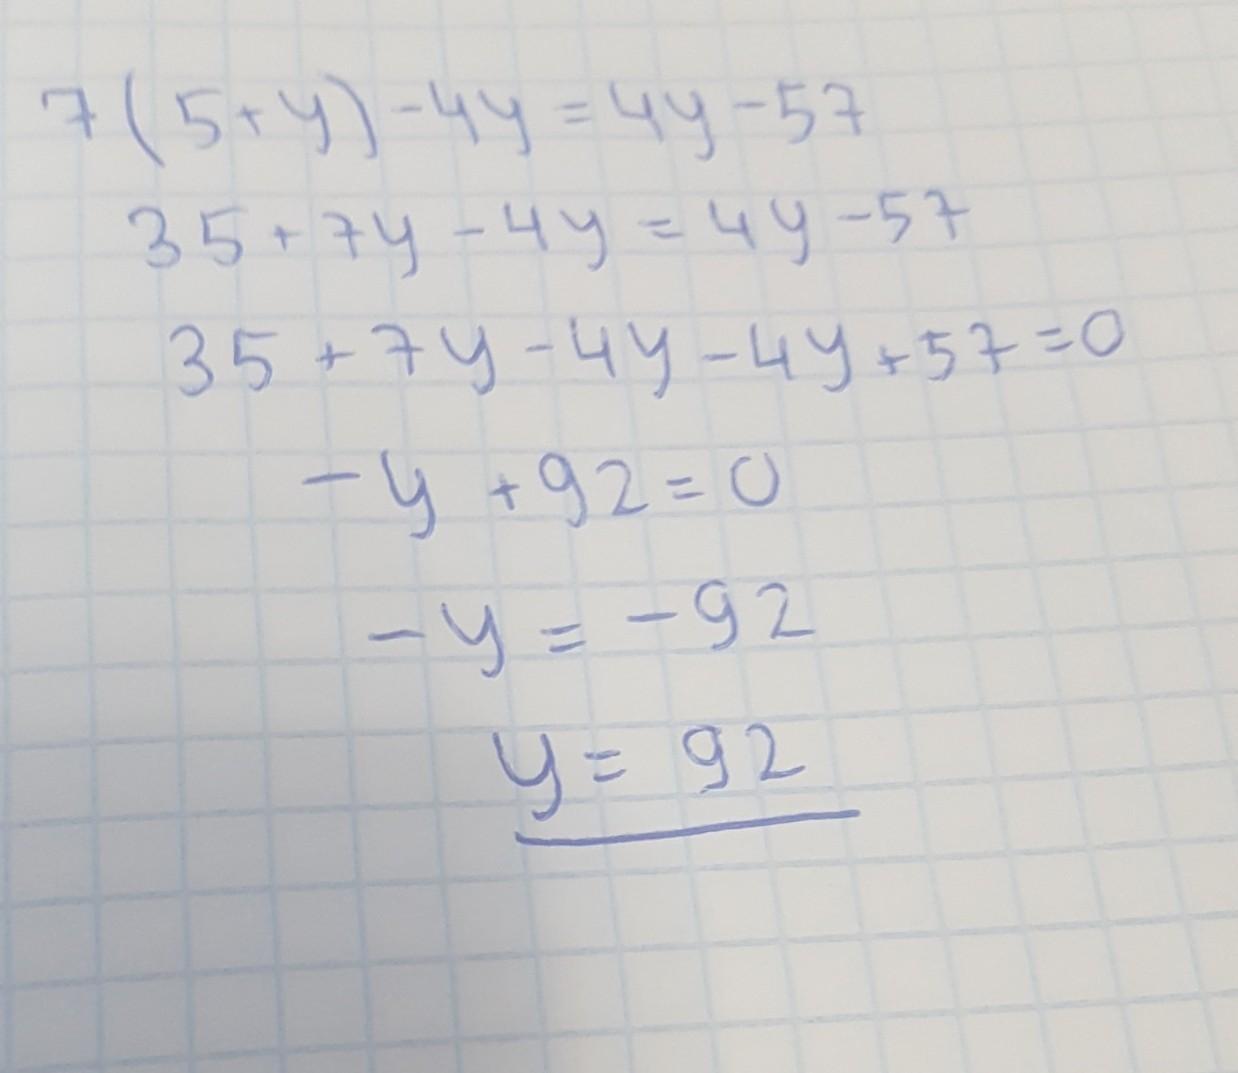 7(5+y)-4y=4y-57
35+7y-4y=4y-57
35+7y-4y-4y+57=0
-y+92=0
-y=-92
y=92